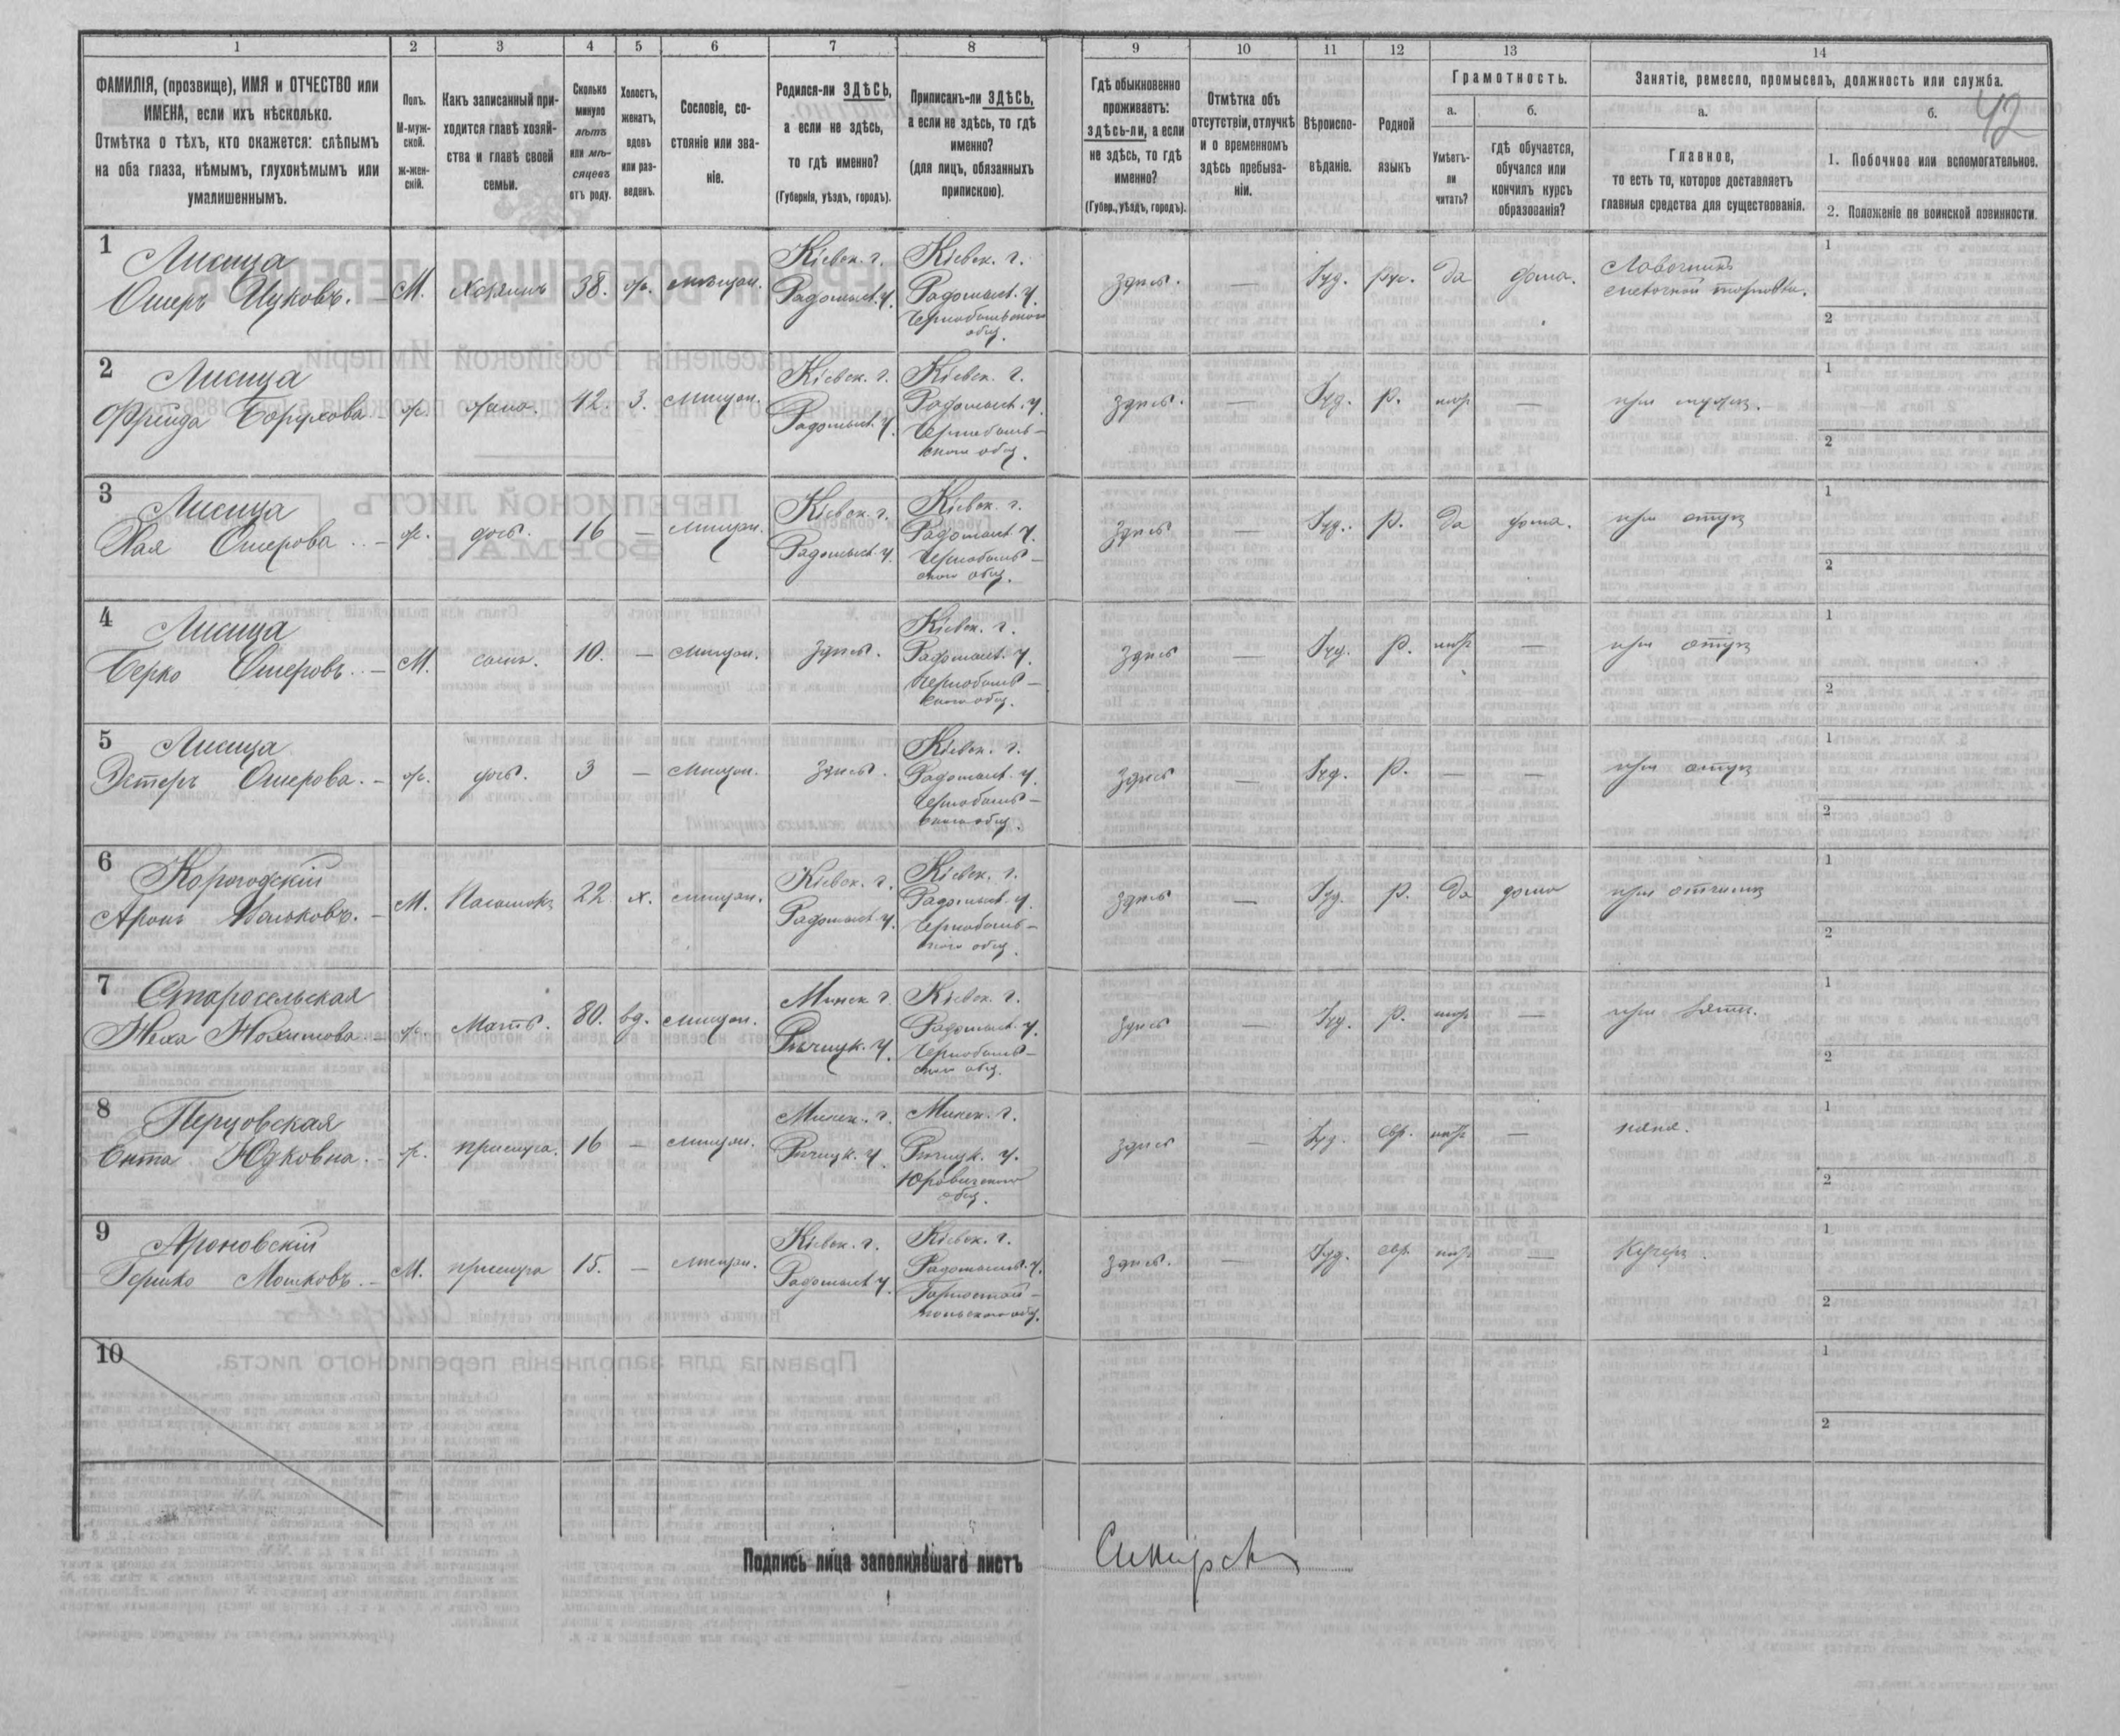 42
1 2 3 4 5 6 7 8 9 10 11 12 13 14
ФАМИЛІЯ, (прозвище), ИМЯ и ОТЧЕСТВО или
ИМЕНА, если ихъ нѣсколько.
Отмѣтка о тѣхъ, кто окажется: слѣпымъ
на оба глаза, нѣмымъ, глухонѣмымъ или
умалишеннымъ.
Полъ.
М-муж-
ской.
ж-жен-
скій.
Какъ записанный при-
ходится главѣ хозяй-
ства и главѣ своей
семьи.
Сколько
минуло
лѣтъ
или мѣ-
сяцевъ
отъ роду.
Холостъ,
женатъ,
вдовъ
или раз-
веденъ.
Сословіе, со-
стояніе или зва-
ніе.
Родился-ли ЗДѢСЬ,
а если не здѣсь,
то гдѣ именно?
(Губернія, уѣздъ, городъ).
Приписанъ-ли ЗДѢСЬ,
а если не здѣсь, то гдѣ
именно?
(для лицъ, обязанныхъ
припискою).
Гдѣ обыкновенно
проживаетъ:
здѣсь-ли, а если
не здѣсь, то гдѣ
именно?
(Губер., уѣздъ, городъ).
Отмѣтка объ
отсутствіи, отлучкѣ
и о временномъ
здѣсь пребыва-
ніи.
Вѣроиспо-
вѣданіе.
Родной
языкъ
Грамотность.
а.
Умѣетъ-
ли
читать?
б.
гдѣ обучается,
обучался или
кончилъ курсъ
образованія?
Занятіе, ремесло, промыселъ, должность или служба.
а.
Главное,
то есть то, которое доставляетъ
главныя средства для существованія.
б.
1. Побочное или вспомогательное.
2. Положеніе по воинской повинности.
1
Лисица
Ошеръ Ицковъ. М. Хозяинъ 38. ж. мѣщан.
Кіевск. г.
Радомысл. у.
Кіевск. г.
Радомысл. у.
Чернобыльского
общ.
здѣсь. — Іуд. рус. да дома.
Лавочникъ
1
2
2
Лисица
Фрейда Борухова ж. жена. 42. З. мѣщан.
Кіевск. г.
Радомысл. у.
Кіевск. г.
Радомысл. у.
Чернобыль-
ского общ.
здѣсь. — Іуд. р. нѣтъ — при мужѣ.
1
2
3
Лисица
Хая Ошерова ж. дочь. 16 — мѣщан.
Кіевск. г.
Радомысл. у.
Кіевск. г.
Радомысл. у.
Чернобыль-
ского общ.
здѣсь — Іуд. р. да дома. при отцѣ
1
2
4
Лисица
Берко Ошеровъ М. сынъ. 10. — мѣщан. здѣсь.
Кіевск. г.
Радомысл. у.
Чернобыль-
ского общ.
здѣсь — Іуд. р. нѣтъ — при отцѣ
1
2
5
Лисица
Эстеръ Ошерова. ж. дочь. 3 — мѣщан. здѣсь.
Кіевск. г.
Радомысл. у.
Чернобыль-
ского общ.
здѣсь — Іуд. р. — — при отцѣ
1
2
6
Корогодскій
Аронъ М. Пасынокъ 22. х. мѣщан.
Кіевск. г.
Радомысл. у.
Кіевск. г.
Радомысл. у.
Чернобыль-
ского общ.
здѣсь — Іуд. р. да дома при отчимѣ
1
2
7
Старосельская
Нохимова ж. Мать. 80. вд. мѣщан.
Минск г.
Рѣчицк. у.
Кіевск. г.
Радомысл. у.
Чернобыль-
ского общ.
здѣсь — Іуд. р. нѣтъ — при зятѣ.
1
2
8
Перцовская
Ента Юдковна. ж. прислуга. 16 — мѣщан.
Минск. г.
Рѣчицк. у.
Минск. г.
Рѣчицк. у.
Юровичского
общ.
здѣсь — Іуд. евр. нѣтъ — няня.
1
2
9
Ароновскій
Гершко Мошковъ. М. прислуга 15. — мѣщан.
Кіевск. г.
Радомысл. у.
Кіевск. г.
Радомысл. у.
Горностай-
польского общ.
здѣсь. — Іуд. евр нѣтъ — Кучеръ.
1
2
10
1
2
Подпись лица заполнявшаго листъ